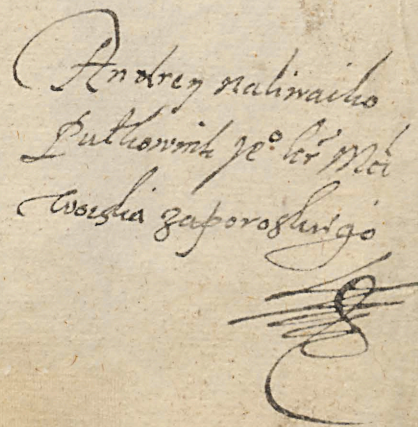 Andrey naliwaiko
Pułkownik Je° kr Mci
woiska zaporoskiego